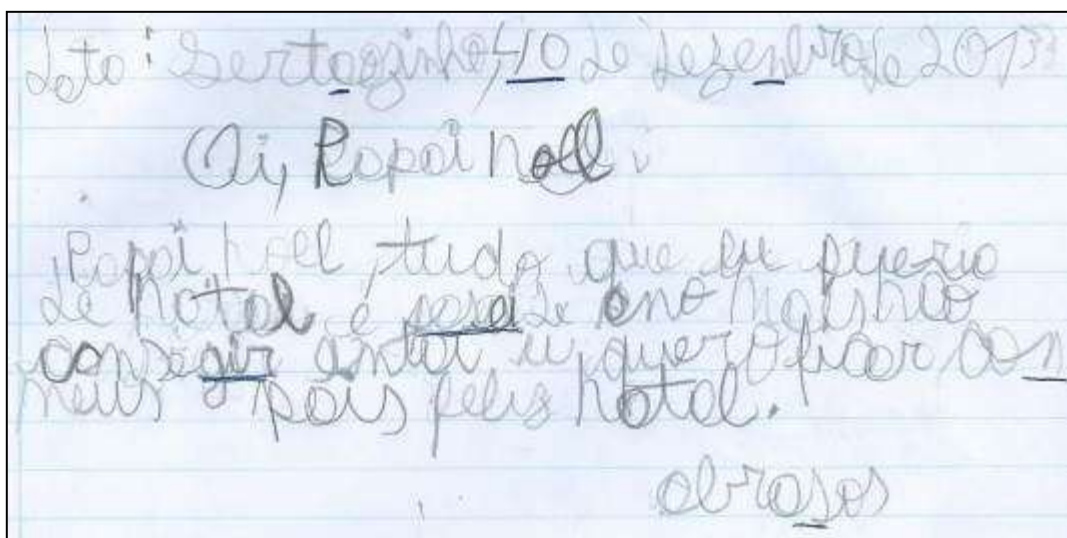 Data: Sertaozinho, 10 de dezenbro de 2013
Oi, Papai noel:
Papai noel, tudo que eu queria
de natal é pasa de ano mais não
consegir entai eu quero ficar con
meus pais feliz natal.
abrasos